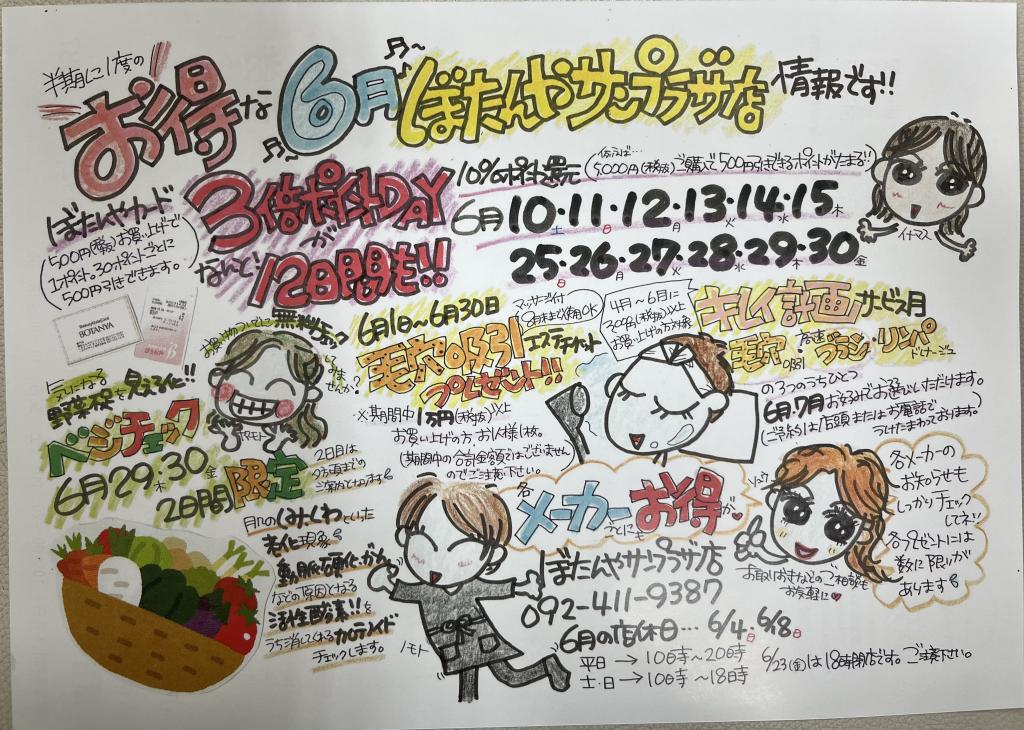 半期に1度の
お得な6月ぼたんやサンプラザ店情報です!!
ぼたんやカード
(500円(税抜)お買い上げで
1ポイント。30ポイントごとに
500円引きできます。)
3倍ポイントDAYが
なんと!12日間も!!
10%ポイント還元
(例えば…
5,000円(税抜)ご購入で500円引きできるポイントがたまる!!)
6月10・11・12・13・14・15
土 日 月 火 水 木
25・26・27・28・29・30
日 月 火 水 木 金
イナマス
BOTANYA
お買い物ついでに無料チェック
しませんか?
気になる
野菜不足を見える化!!
ベジチェック
6月29・30
木 金
2日間限定
2日目は
までの
ご案内となります
ヤマモト
6月1日~6月30日
毛穴吸引エステチケット
プレゼント!!
マッサージ付
8月末まで使用OK
※期間中1万円(税抜)以上
お買い上げの方、お1人様1枚。
(期間中の合計金額ではございません
のでご注意下さい。)
4月~6月に
30,000円(税抜)以上
お買い上げの方対象
キレイ計画サービス月
毛穴吸引・高速ブラシ・リンパドレナージュ
の3つのうちひとつ
6月、7月お好みでお選びいただけます。
(ご予約は店頭またはお電話で
うけたまわっております。)
肌へのしみ、しわといった
老化現象
動脈硬化・がん
などの原因となる
活性酸素!!を
うち消してくれるカロテノイド
チェックします。
ノモト
各メーカーごとにもお得が♥
ぼたんやサンプラザ店
092-411-9387
6月の店休日…6/4日、6/18日
平日→10時~20時
土・日→10時~18時
6/23(金)は18時閉店です。ご注意下さい。
お取りおきなどのご相談も
お気軽に♥
各メーカーの
お知らせも
しっかりチェック
してネ!
各プレゼントには
数に限りが
あります